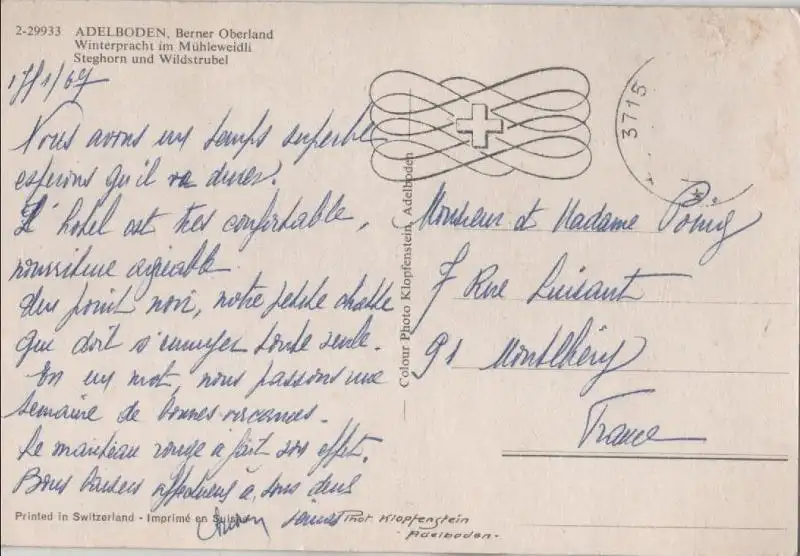 2-29933 ADELBODEN, Berner Oberland
Winterpracht im Mühleweidli
Steghorn und Wildstrubel
Nous avons un temps superbe
esperons qu'il va durer.
L'hotel est très confortable,
nourriture agréable.
Un point noir, notre petite chatte
que doit s'ennuyer toute seule.
En un mot, nous passons une
semaine de bonnes vacances.
Le manteau rouge a fait son effet.
Bons baisers affectueux à tous deux
Printed in Switzerland - Imprimé en Suisse
Colour Photo Klopfenstein, Adelboden
3715
Monsieur et Madame
7 Rue Luisant
91 Montlhéry
France
Phot. Klopfenstein
- Adelboden -